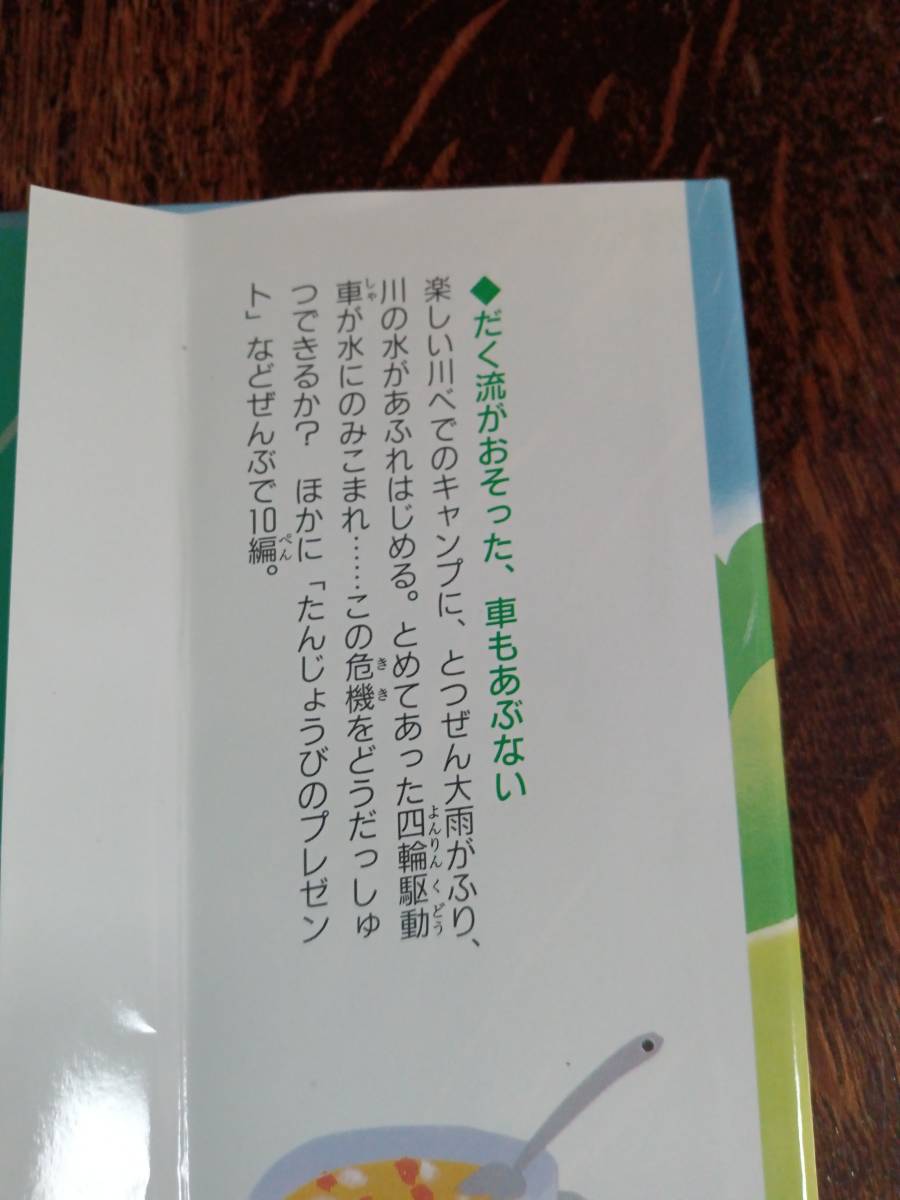 ◆だく流がおそった、車もあぶない
楽しい川べでのキャンプに、とつぜん大雨がふり、
川の水があふれはじめる。とめてあった四輪駆動
車が水にのみこまれ……この危機をどうだっしゅ
つできるか？　ほかに「たんじょうびのプレゼン
ト」などぜんぶで10編。